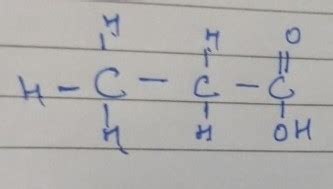 H H O
H - C - C - C
H H OH